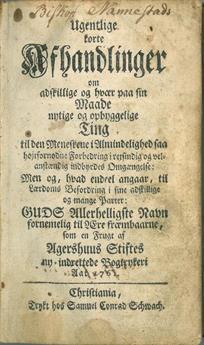 Bishop Nannestads
Ugentlige
korte
Afhandlinger
om
adskillige og hvær paa sin
Maade
nyttige og opbyggelige
Ting
til den Menneskene i Almindelighed saa
høiefornødne Forbedring i verslig og vel-
anstændig indbyrdes Omgængelse:
Men og, hvad endeel angaar, til
Lærdoms Befordring i sine adskillige
og mange Parter:
GUDS Allerhelligste Navn
fornemelig til Ære fræmbaarne,
som en Frugt af
Agershuus Stiftes
ny-indrettede Bogtrykeri
Aar 1761.
Christiania,
Trykt hos Samuel Conrad Schwach.